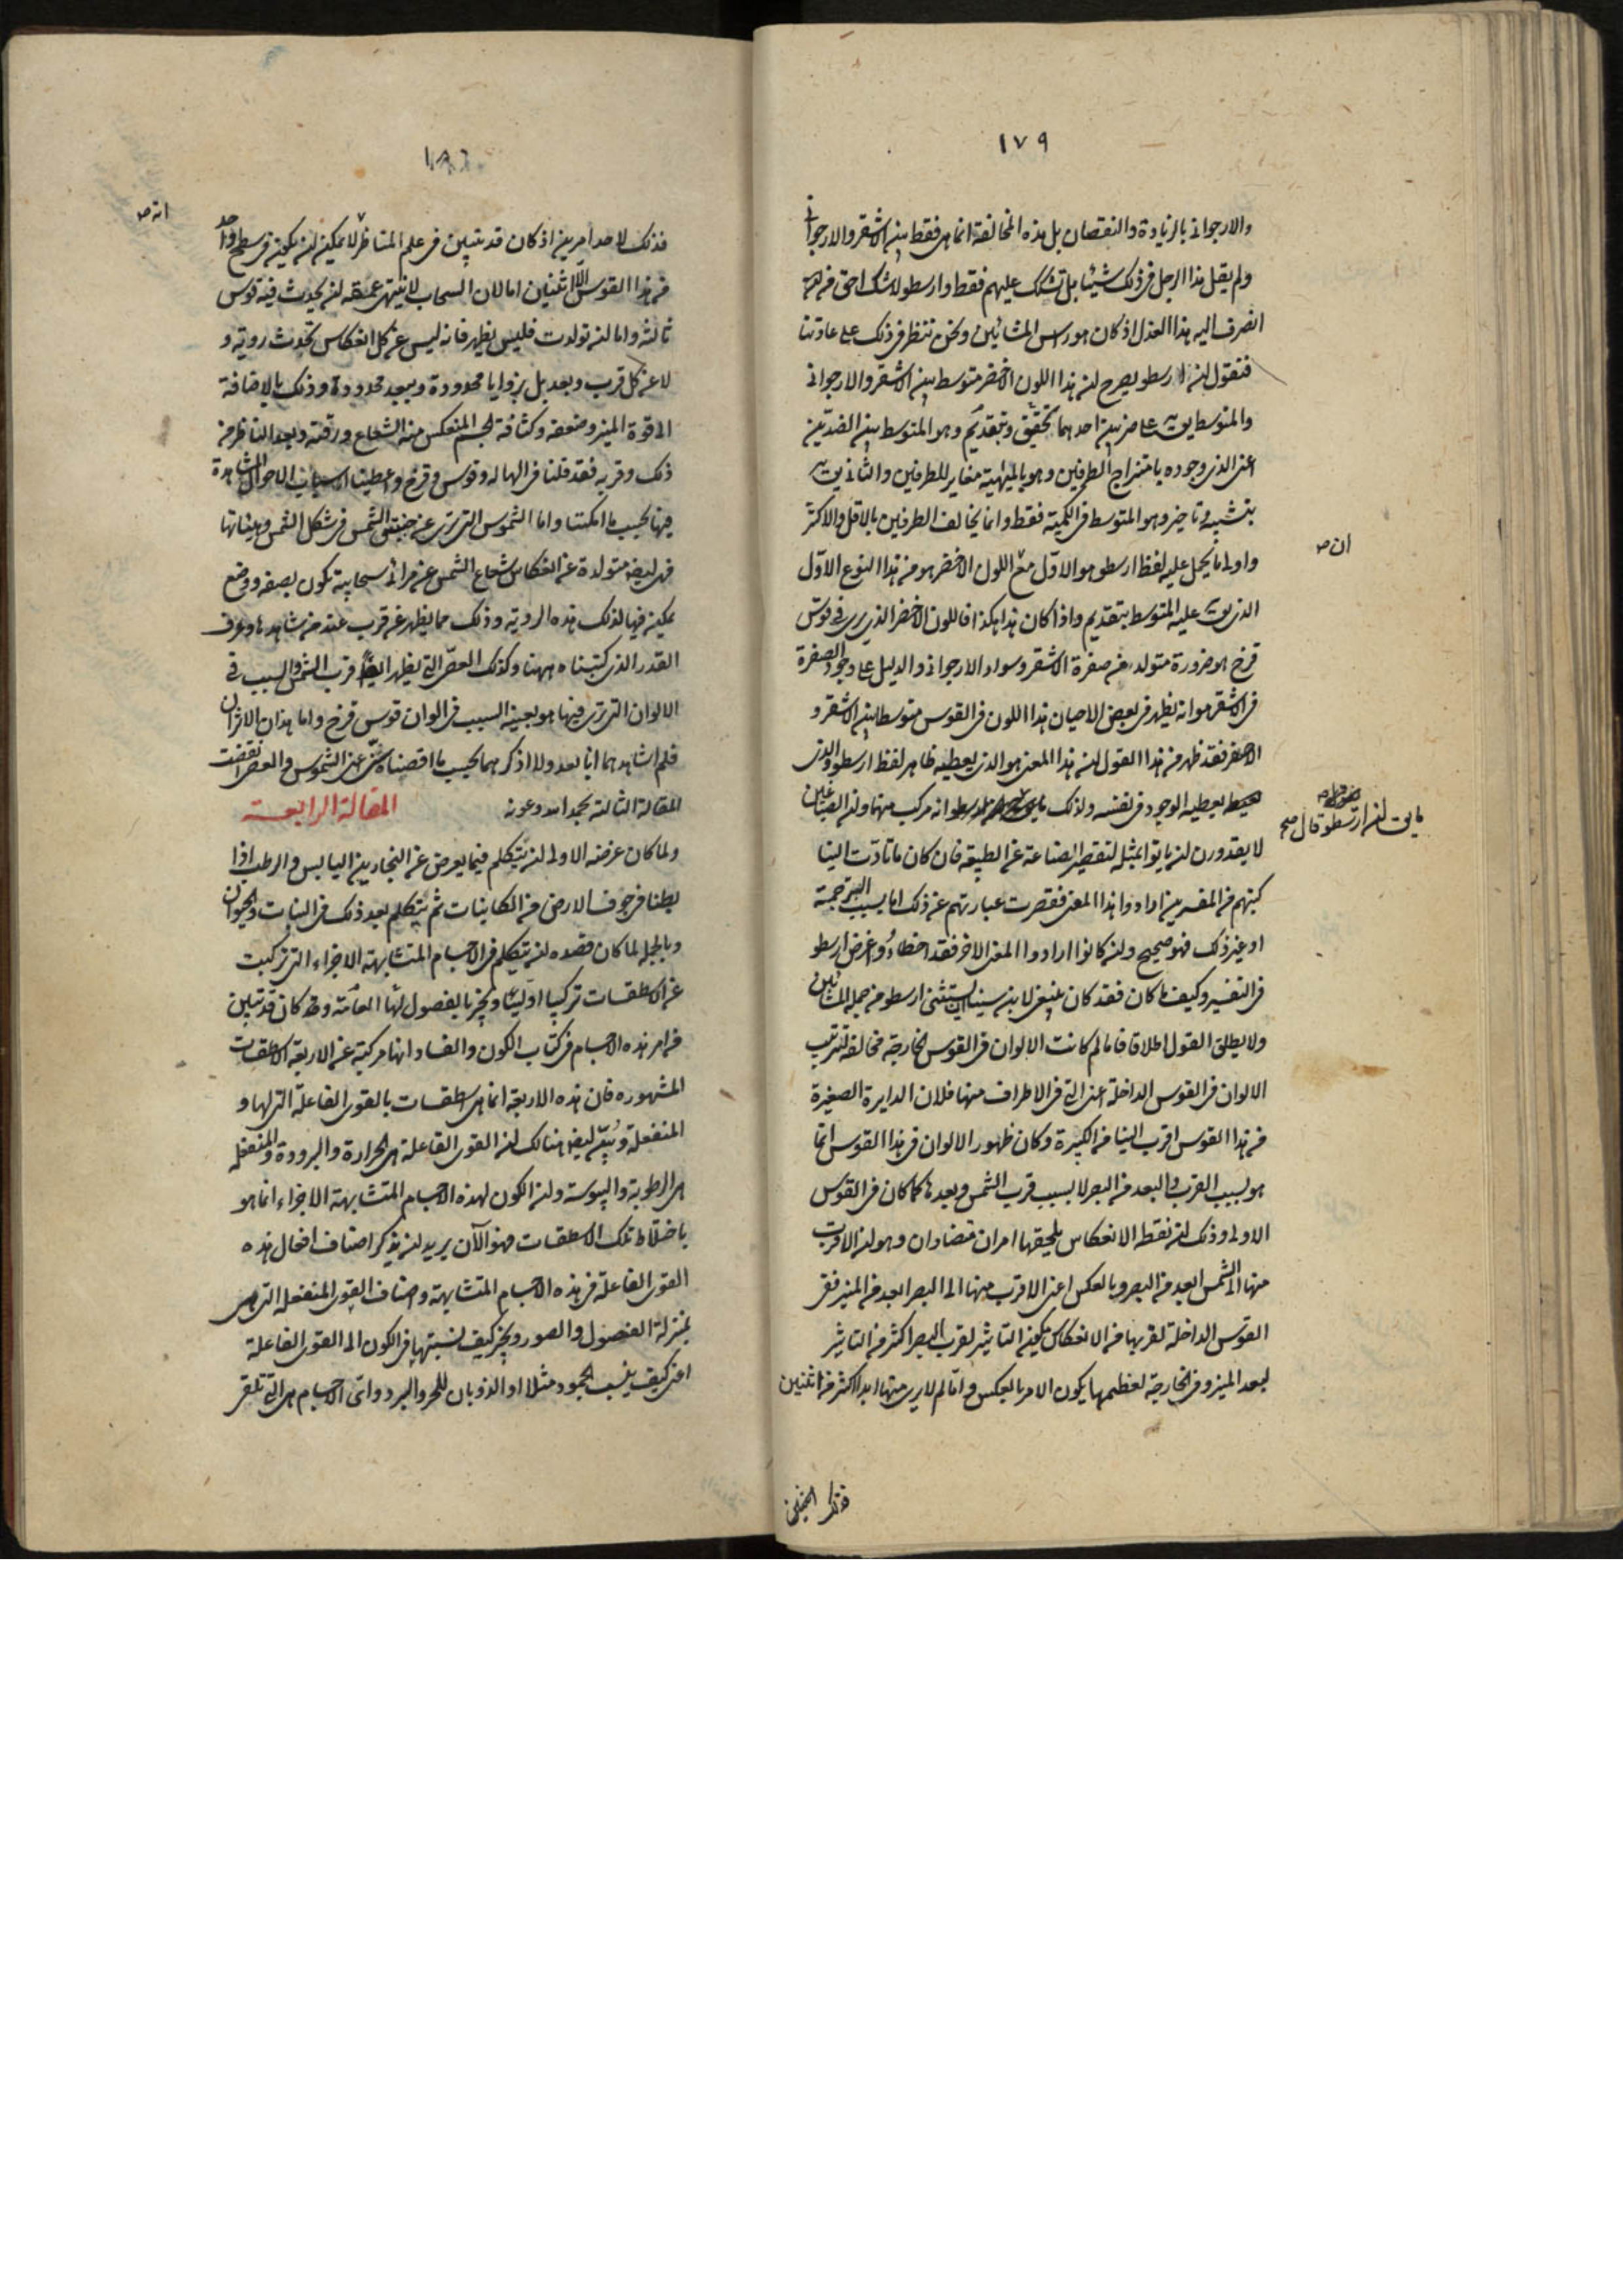 ١٧٩
والارجوانى بالزيادة والنقصان بل هذه المخالفة انما هى فقط بين الاشقر والارجوانى
ولم يقل هذا الرجل فى ذلك شيئا بل تشكك عليهم فقط وارسطو لا شك احق من
انصرف اليه هذا العذل اذ كان هو راس المشائين ونحن ننظر فى ذلك على عادتنا
فنقول ان ارسطو يصرح ان هذا اللون الاخضر متوسط بين الاشقر والارجوانى
والمتوسط يق على ضربين احدهما بتحقيق وبتقديم وهو المتوسط بين الضدين
اعنى الذى وجوده بامتزاج الطرفين وهو بالماهية مغاير للطرفين والثانى يق
بتشبيه وتاخير وهو المتوسط فى الكمية فقط وانما يخالف الطرفين بالاقل والاكثر
ان ص
واولى ما يحمل عليه لفظ ارسطو هو الاول مع اللون الاخضر هو من هذا النوع الاول
الذى يق عليه المتوسط بتقديم واذا كان هذا هكذا فاللون الاخضر الذى يرى فى قوس
قزح هو ضرورة متولد عن صفرة الاشقر وسواد الارجوانى والدليل على وجود الصفرة
فى الاشقر هو انه يظهر فى بعض الاحيان هذا اللون فى القوس متوسطا بين الاشقر و
الاخضر فقد ظهر من هذا القول ان هذا المعنى هو الذى يعطيه ظاهر لفظ ارسطو والذى
يعطيه الوجود فى نفسه ولذلك انه مركب منها وان الصباغين
ما يق ان ارسطو قال صح
لا يقدرون ان ياتوا بمثله لتقصير الصناعة عن الطبيعة فان كان ما تادت الينا
كتبهم من المفسرين ارادوا هذا المعنى فقصرت عبارتهم عن ذلك اما بسبب الترجمة
او غير ذلك فهو صحيح وان كانوا ارادوا المعنى الاخر فقد اخطاءوا غرض ارسطو
فى التفسير وكيف ما كان فقد كان ينبغى لابن سينا ان يستثنى ارسطو من جملة المشائين
ولا يطلق القول اطلاقا فاما لم كانت الالوان فى القوس الخارجة مخالفة لترتيب
الالوان فى القوس الداخلة اعنى التى فى الاطراف منها فلان الدايرة الصغيرة
من هذا القوس اقرب الينا من الكبيرة وكان ظهور الالوان فى هذا القوس انما
هو بسبب القرب والبعد من البصر لا بسبب قرب الشمس وبعدها كما كان فى القوس
الاولى وذلك ان نقطه الانعكاس يلحقها امران متضادان وهو ان الاقرب
منها الى الشمس ابعد من البصر وبالعكس اعنى الاقرب منها الى البصر ابعد من المنير ففى
القوس الداخلة لقربها من الانعكاس يكون التاثير لقرب البصر اكثر من التاثير
لبعد المنير وفى الخارجة لعظمها يكون الامر بالعكس واما لم لا يرى منها ابدا اكثر من اثنين
فذلك

١٨٠
انه ص
فذلك لاحد امرين اذ كان قد تبين فى علم المناظر لا يمكن ان يكون فى سطح واحد
من هذا القوس الا اثنين اما لان السحاب لا ينتهى عمقه ان يحدث فيه قوس
ثالثة واما ان تولدت فليس يظهر فانه ليس عن كل انعكاس تحدث روية و
لا عن كل قرب وبعد بل بزوايا محدودة وببعد محدودة وذلك بالاضافة
الى قوة المنير وضعفه وكثافة الجسم المنعكس منه الشعاع ورقته وبعد الناظر من
ذلك وقربه فقد قلنا فى الهاله وقوس قزح واعطينا اسباب الاحوال المشاهدة
فيها بحسب ما امكننا واما الشموس التى ترى عن جنبتى الشمس فى شكل الشمس وهيئاتها
فهى ايضا متولدة عن انعكاس شعاع الشمس عن مرائى سحابية تكون بصفه ووضع
يمكن فيها لذلك هذه الروية وذلك مما يظهر عن قرب عند من شاهدها وعرف
القدر الذى كتبناه ههنا وكذلك العصى التى يظهر ايضا قرب الشمس والسبب فى
الالوان التى ترى فيها هو بعينه السبب فى الوان قوس قزح واما هذان الاثران
فلم اشاهدهما انا بعد ولا اذكرهما بحسب ما اقصناه عن الشموس والعصى انقضت
المقالة الثالثة بحمد الله وعونه المقالة الرابعة
ولما كان غرضه الاولى ان يتكلم فيما يعرض عن البخارين اليابس والرطب اذا
بطنا فى جوف الارض من الكاينات ثم يتكلم بعد ذلك فى النبات والحيوان
وبالجملة لما كان قصده ان يتكلم فى الاجسام المتشابهة الاجزاء التى تركبت
عن الاسطقسات تركيبا اوليا ويخبر بالفصول لها العامة وقد كان قد تبين
من امر هذه الاجسام فى كتاب الكون والفساد انها مركبة عن الاربعة الاسطقسات
المشهوره فان هذه الاربعة انما هى اسطقسات بالقوى الفاعلة التى لها و
المنفعلة وتبين ايضا هنالك ان القوى الفاعلة هى الحرارة والبرودة والمنفعلة
هى الرطوبة واليبوسة وان الكون لهذه الاجسام المتشابهة الاجزاء انما هو
باختلاط تلك الاسطقسات فهو الآن يريد ان يذكر اصناف افعال هذه
القوى الفاعلة فى هذه الاجسام المتشابهة واصناف القوى المنفعلة التى هى
بمنزلة الفصول والصور ويخبر كيف نسبتها فى الكون الى القوى الفاعلة
اعنى كيف ينسب الجمود مثلا او الذوبان للحر والبرد واى الاجسام هى التى تلقى